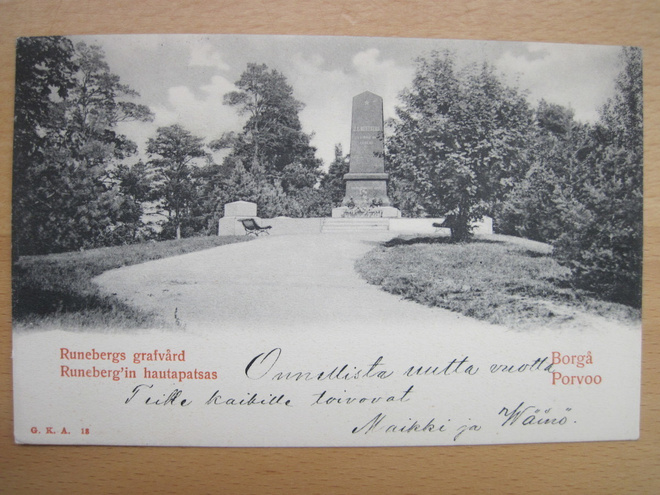 Runebergs grafvård
Runeberg'in hautapatsas
Borgå
Porvoo
Onnellista uutta vuotta
Teille kaikille toivovat
Maikki ja Wäinö.
G. K. A. 18